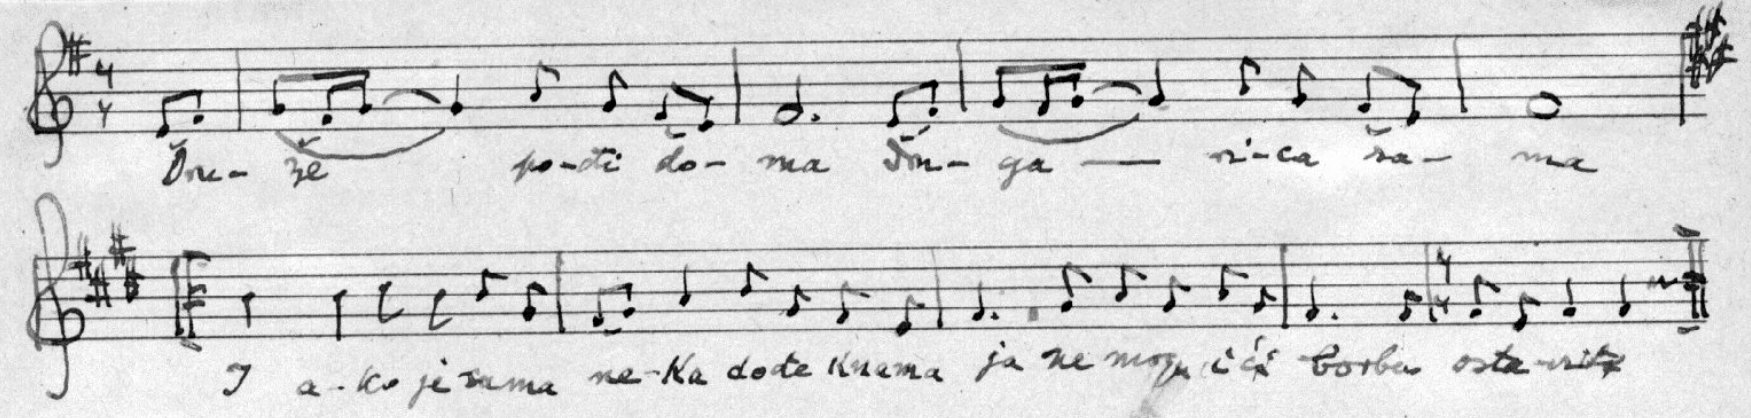 Dru - že po-đi do - ma Dru - ga — ri-ca sa - ma
I a-ko je sama ne-ka dođe knama ja ne mogu ići borbu osta-viti